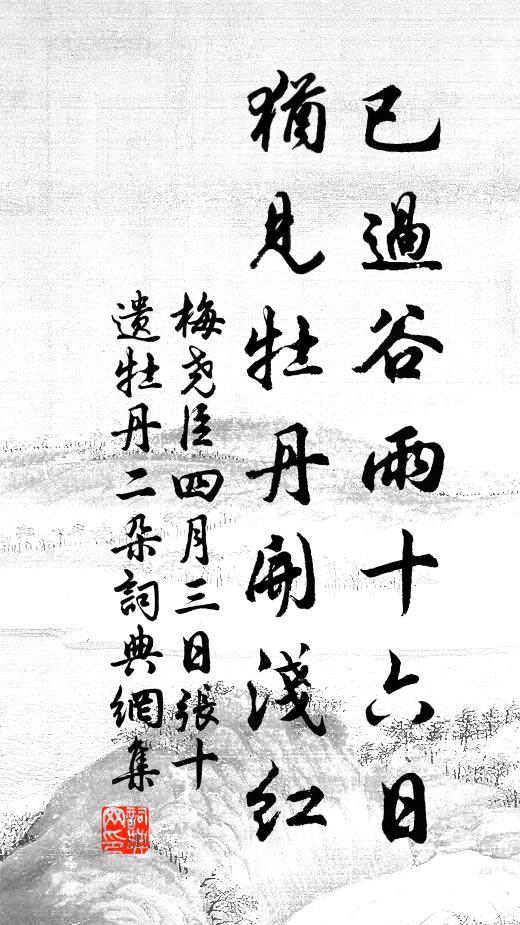 已過谷雨十六日
猶見牡丹開淺紅
梅堯臣四月三日張十
遺牡丹二朵詞典網集
詞典
网印